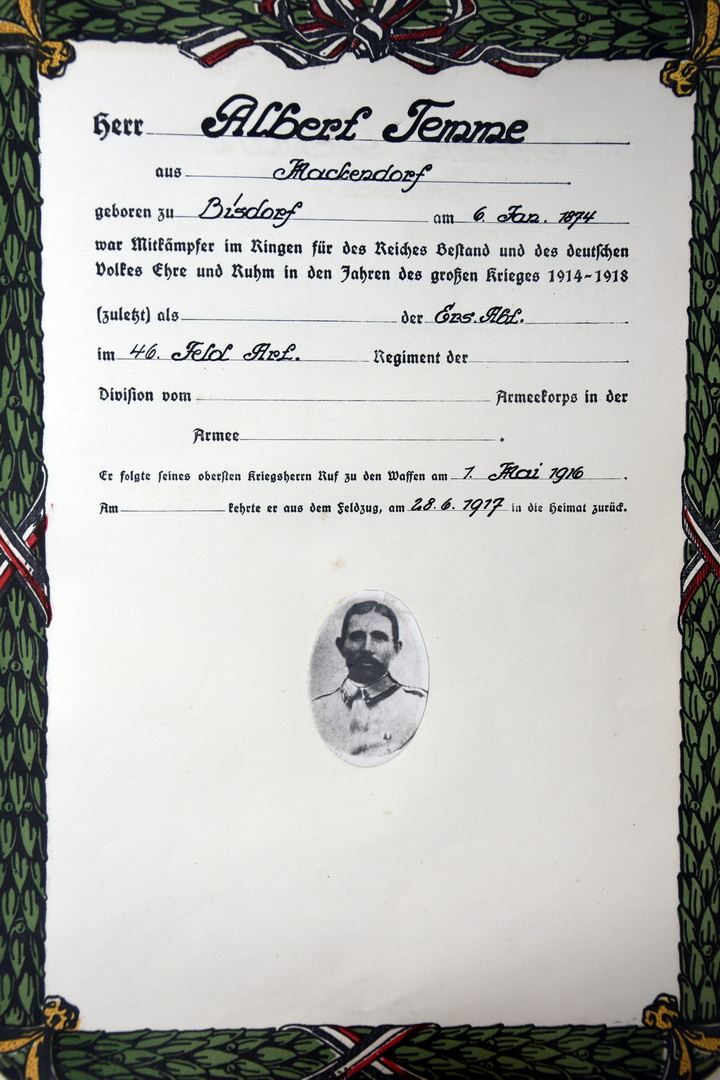 Herr Albert Temme
aus Mackendorf
geboren zu Bisdorf am 6. Jan. 1874
war Mitkämpfer im Ringen für des Reiches Bestand und des deutschen
Volkes Ehre und Ruhm in den Jahren des großen Krieges 1914-1918
(zuletzt) als der Ers. Abt.
im 46. Feld Art. Regiment der
Division vom Armeekorps in der
Armee .
Er folgte seines obersten Kriegsherrn Ruf zu den Waffen am 1. Mai 1916 .
Am kehrte er aus dem Feldzug, am 28. 6. 1917 in die Heimat zurück.